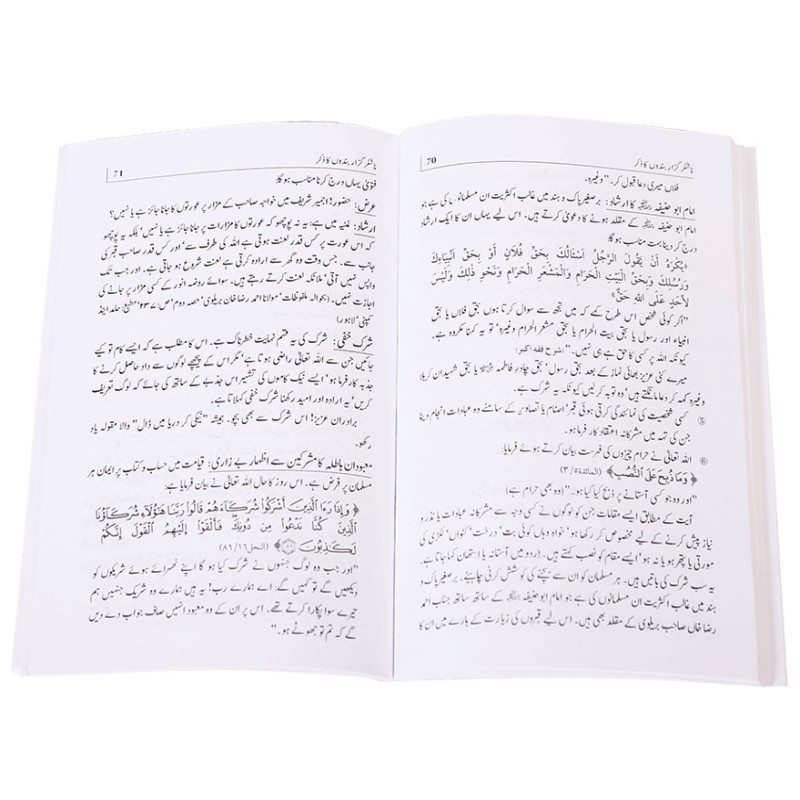 ناشکر گزار بندوں کا ذکر
70
فلاں میری دعا قبول کر۔‘‘ وغیرہ۔
امام ابو حنیفہ رحمہ اللہ کا ارشاد: برصغیر پاک و ہند میں غالب اکثریت ان مسلمانوں کی ہے جو
امام ابو حنیفہ رحمہ اللہ کے مقلد ہونے کا دعویٰ کرتے ہیں۔ اس لیے یہاں ان کا ایک ارشاد
درج کر دینا بہت مناسب ہو گا:
’’یُکْرَهُ أَنْ یَقُولَ الرَّجُلُ أَسْئَالُكَ بِحَقِّ فُلَانٍ أَوْ بِحَقِّ أَنْبِیَاءِكَ
وَرُسُلِكَ وَبِحَقِّ الْبَیْتِ الْحَرَامِ وَالْمَشْعَرِ الْحَرَامِ وَنَحْوِ ذَلِكَ وَلَیْسَ
لِأَحَدٍ عَلَى اللَّهِ حَقٌّ‘‘
’’اگر کوئی شخص اس طرح کہے کہ میں تجھ سے سوال کرتا ہوں بحق فلاں یا بحق
انبیاء اور رسول یا بحق بیت الحرام یا بحق مشعر الحرام وغیرہ‘ تو یہ کہنا مکروہ ہے۔
کیونکہ اللہ پر کسی کا حق ہے ہی نہیں۔‘‘ (شرح فقہ اکبر)
میرے کئی عزیز بھائی نماز کے بعد بحق رسول‘ بحق چادر فاطمہ یا بحق شہیدان کربلا
وغیرہ کہہ کر دعا مانگتے ہیں‘ وہ توبہ کر لیں کیونکہ یہ شرک ہے۔
⑤ کسی شخصیت کی نمائندگی کرتی ہوئی قبر‘ اصنام یا تصاویر کے سامنے وہ عبادات انجام دینا
جن کی تہہ میں مشرکانہ اعتقاد کار فرما ہو۔
⑥ اللہ تعالیٰ نے حرام چیزوں کی فہرست بیان کرتے ہوئے فرمایا:
﴿ وَمَا ذُبِحَ عَلَى النُّصُبِ ﴾ (المائدۃ ۵/ ۳)
’’اور وہ جو کسی آستانے پر ذبح کیا گیا ہو۔‘‘ (وہ بھی حرام ہے)
آیت کے مطابق ایسے مقامات جن کو لوگوں نے کسی وجہ سے مشرکانہ عبادات یا نذر و
نیاز پیش کرنے کے لیے مخصوص کر رکھا ہو‘ خواہ وہاں کوئی بت‘ درخت‘ کنواں‘ لکڑی کی
مورتی یا پتھر ہو یا نہ ہو‘ ایسے مقام کو نصب کہتے ہیں۔ اردو میں آستانہ یا استھان کہا جاتا ہے۔
یہ سب شرک کی باتیں ہیں۔ ہر مسلمان کو ان سے بچنے کی کوشش کرنی چاہیئے۔ برصغیر پاک و
ہند میں غالب اکثریت ان مسلمانوں کی ہے جو امام ابو حنیفہ رحمہ اللہ کے ساتھ ساتھ جناب احمد
رضا خاں صاحب بریلوی کے مقلد بھی ہیں۔ اس لیے قبروں کی زیارت کے بارے میں ان کا
ناشکر گزار بندوں کا ذکر
71
فتویٰ یہاں درج کرنا مناسب ہو گا:
عرض: حضور! اجمیر شریف میں خواجہ صاحب کے مزار پر عورتوں کا جانا جائز ہے یا نہیں؟
ارشاد: غنیہ میں ہے: یہ نہ پوچھو کہ عورتوں کا مزارات پر جانا جائز ہے یا نہیں‘ بلکہ یہ پوچھو
کہ اس عورت پر کس قدر لعنت ہوتی ہے اللہ کی طرف سے‘ اور کس قدر صاحب قبر کی
جانب سے۔ جس وقت وہ گھر سے ارادہ کرتی ہے لعنت شروع ہو جاتی ہے۔ اور جب تک
واپس نہیں آتی‘ ملائکہ لعنت کرتے رہتے ہیں۔ سوائے روضہ انور کے کسی مزار پر جانے کی
اجازت نہیں۔ (بحوالہ ملفوظات‘ مولانا احمد رضا خاں بریلوی‘ حصہ دوم‘ ص: ۲۳۷‘ مطبع: حامد اینڈ
کمپنی‘ لاہور)
شرک خفی: شرک کی یہ قسم نہایت خطرناک ہے۔ اس کا مطلب ہے کہ ایسے کام تو کیے
جائیں جن سے اللہ تعالیٰ راضی ہوتا ہے‘ مگر اس کے پیچھے لوگوں سے داد حاصل کرنے کا
جذبہ کار فرما ہو‘ ایسے نیک کاموں کی تشہیر اس جذبے کے ساتھ کی جائے کہ لوگ تعریف
کریں‘ یہ ارادہ اور امید رکھنا شرک خفی کہلاتا ہے۔
برادران عزیز! اس شرک سے بھی بچو۔ ہمیشہ ’’نیکی کر دریا میں ڈال‘‘ والا مقولہ یاد
رکھو۔
معبودان باطلہ کا مشرکین سے اظہار بے زاری: قیامت میں حساب و کتاب پر ایمان ہر
مسلمان پر فرض ہے۔ اس روز کا حال اللہ تعالیٰ نے بیان فرمایا ہے:
﴿ وَإِذَا رَءَا الَّذِينَ أَشْرَكُوا شُرَكَآءَهُمْ قَالُوا رَبَّنَا هَٰٓؤُلَآءِ شُرَكَآؤُنَا
الَّذِينَ كُنَّا نَدْعُوا مِن دُونِكَ فَأَلْقَوْا إِلَيْهِمُ الْقَوْلَ إِنَّكُمْ
لَكَٰذِبُونَ ﴾ (النحل ۱۶/ ۸۶)
’’اور جب وہ لوگ جنہوں نے شرک کیا ہو گا اپنے ٹھہرائے ہوئے شریکوں کو
دیکھیں گے تو کہیں گے: اے ہمارے رب! یہ ہیں ہمارے وہ شریک جنہیں ہم
تیرے سوا پکارا کرتے تھے۔ اس پر ان کے وہ معبود انہیں صاف جواب دے دیں
گے کہ تم تو جھوٹے ہو۔‘‘